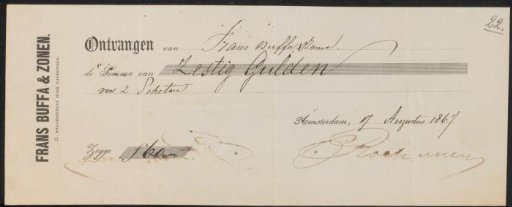 22.
FRANS BUFFA & ZONEN.
Ontvangen van Frans Buffa & Zonen
de Somma van Zestig Gulden
voor 2
Amsterdam, 17 Augustus 1867
Zegge ƒ 60.-